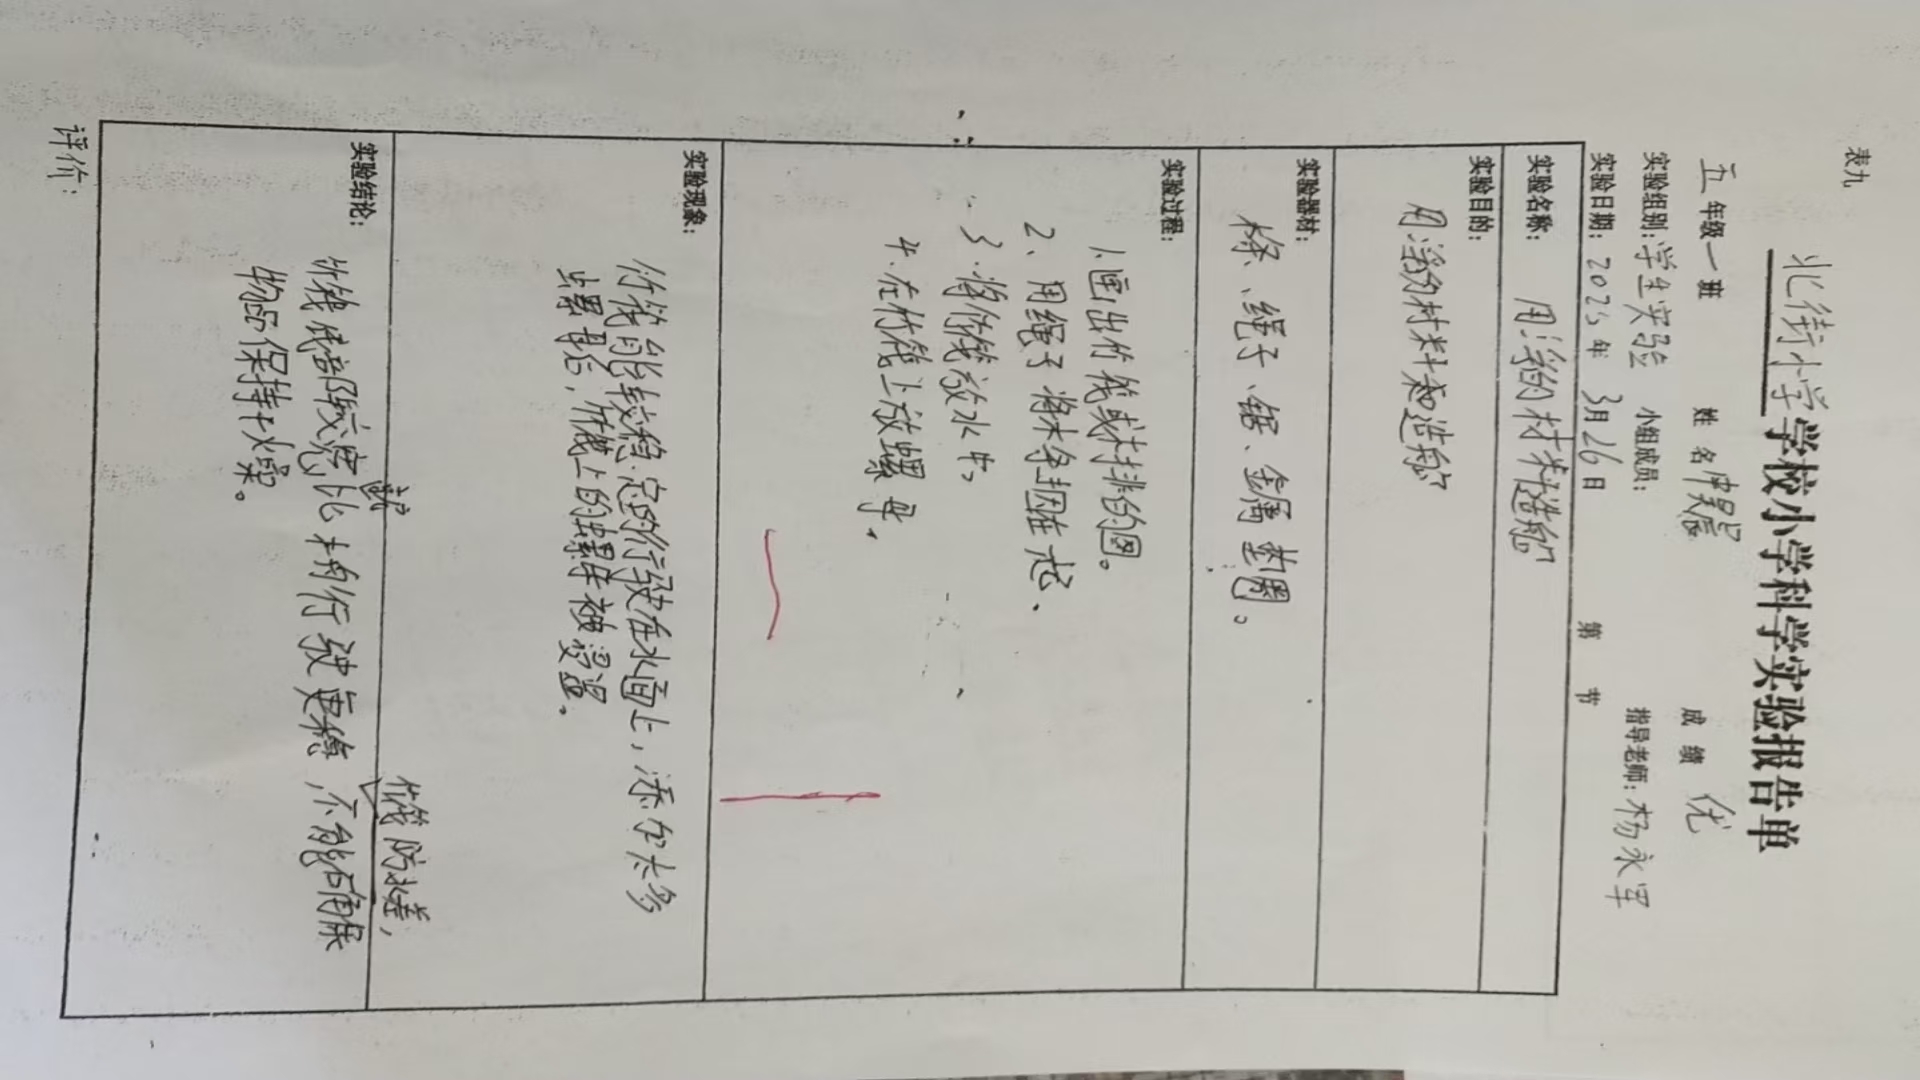 表九
北街小学学校小学科学实验报告单
五年级一班 姓名 昊宸 成绩 优
实验组别：学生实验 小组成员： 指导老师：杨永军
实验日期：2025年3月26日 第 节
实验名称： 用浮的材料造船
实验目的：
用浮的材料来造船
实验器材：
绳子、锯、金属垫圈。
实验过程：
1.画出竹筏或木排的图。
2、用绳子将木条捆在一起、
3.将竹筏放水中
4.在竹筏上放螺母。
实验现象：
竹筏能较稳定的行驶在水面上，添加太多
螺母后，竹筏上的螺母被浸湿。
实验结论：
竹筏底部较宽就比木舟行驶更稳，竹筏防水差，不能确保
物品保持干燥。
评价：